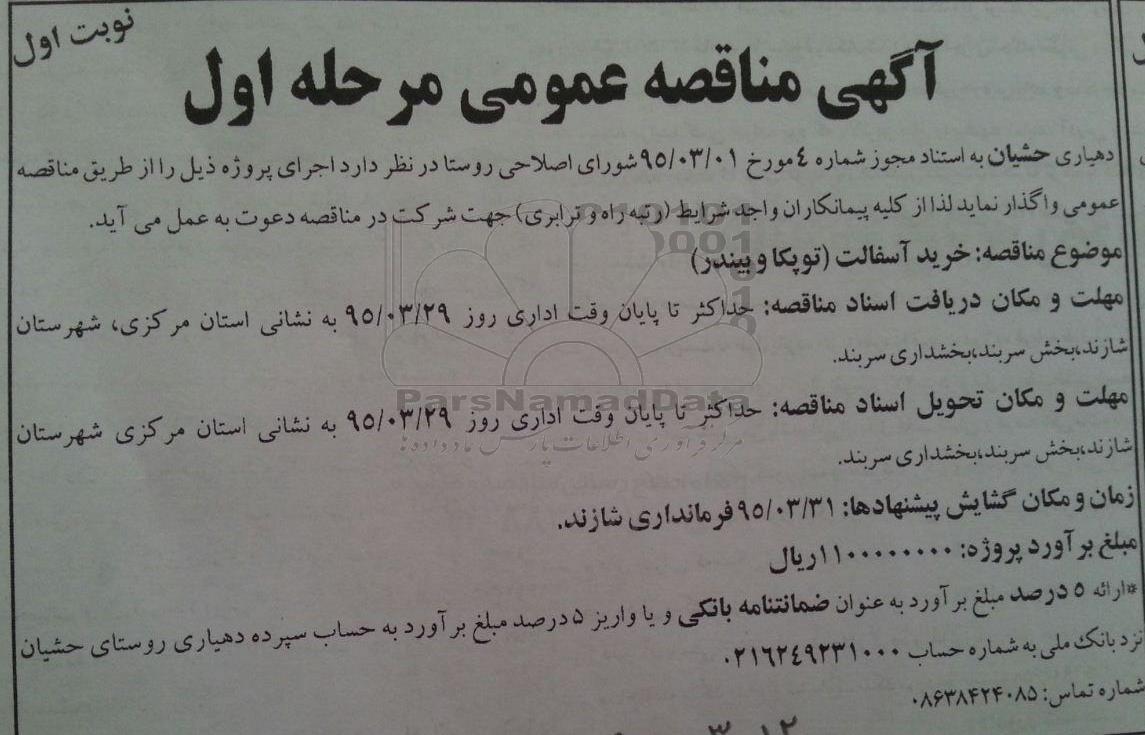 نوبت اول
آگهی مناقصه عمومی مرحله اول
دهیاری حشیان به استناد مجوز شماره ٤ مورخ ۹۵/۰۳/۰۱ شورای اصلاحی روستا در نظر دارد اجرای پروژه ذیل را از طریق مناقصه
عمومی واگذار نماید لذا از کلیه پیمانکاران واجد شرایط (رتبه راه و ترابری) جهت شرکت در مناقصه دعوت به عمل می آید.
موضوع مناقصه: خرید آسفالت (توپکا و بیندر)
مهلت و مکان دریافت اسناد مناقصه: حداکثر تا پایان وقت اداری روز ۹۵/۰۳/۲۹ به نشانی استان مرکزی، شهرستان
شازند،بخش سربند،بخشداری سربند.
مهلت و مکان تحویل اسناد مناقصه: حداکثر تا پایان وقت اداری روز ۹۵/۰۳/۲۹ به نشانی استان مرکزی شهرستان
شازند،بخش سربند،بخشداری سربند.
زمان و مکان گشایش پیشنهادها: ۹۵/۰۳/۳۱ فرمانداری شازند.
مبلغ برآورد پروژه: ۱۱۰۰۰۰۰۰۰۰ ریال
*ارائه ۵ درصد مبلغ برآورد به عنوان ضمانتنامه بانکی و یا واریز ۵ درصد مبلغ برآورد به حساب سپرده دهیاری روستای حشیان
نزد بانک ملی به شماره حساب ۰۲۱٦۲٤۹۲۳۱۰۰۰.
شماره تماس: ۰۸۶۳۸۴۲۴۰۸۵
ParsNamadData